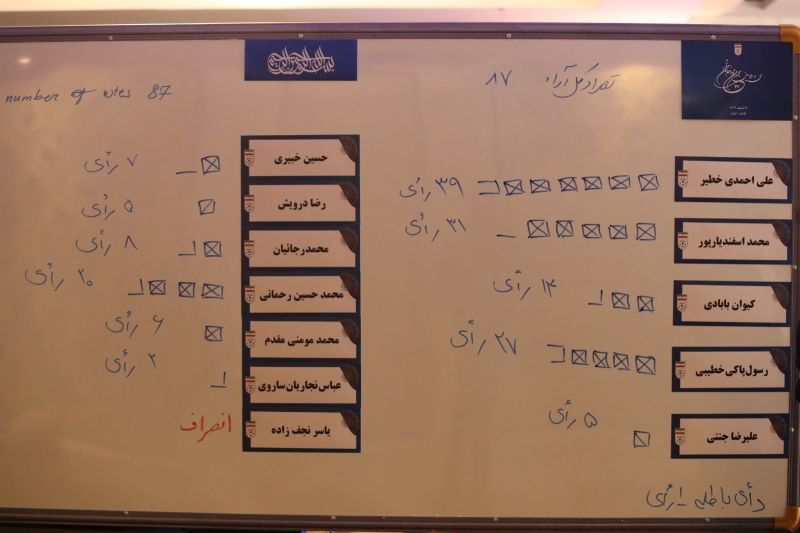 تعداد کل آراء ۸۷
علی احمدی خطیر
۳۹ رأی
محمد اسفندیارپور
۳۱ رأی
کیوان بابادی
۱۲ رأی
رسول پاکی خطیبی
۲۷ رأی
علیرضا جنتی
۵ رأی
رأی باطله ۱ رأی
number of votes 87
حسین خبیری
۷ رأی
رضا درویش
۵ رأی
محمدرجائیان
۸ رأی
محمد حسین رحمانی
۲۰ رأی
محمد مومنی مقدم
۶ رأی
عباس نجاریان ساروی
۲ رأی
یاسر نجف زاده
انصراف